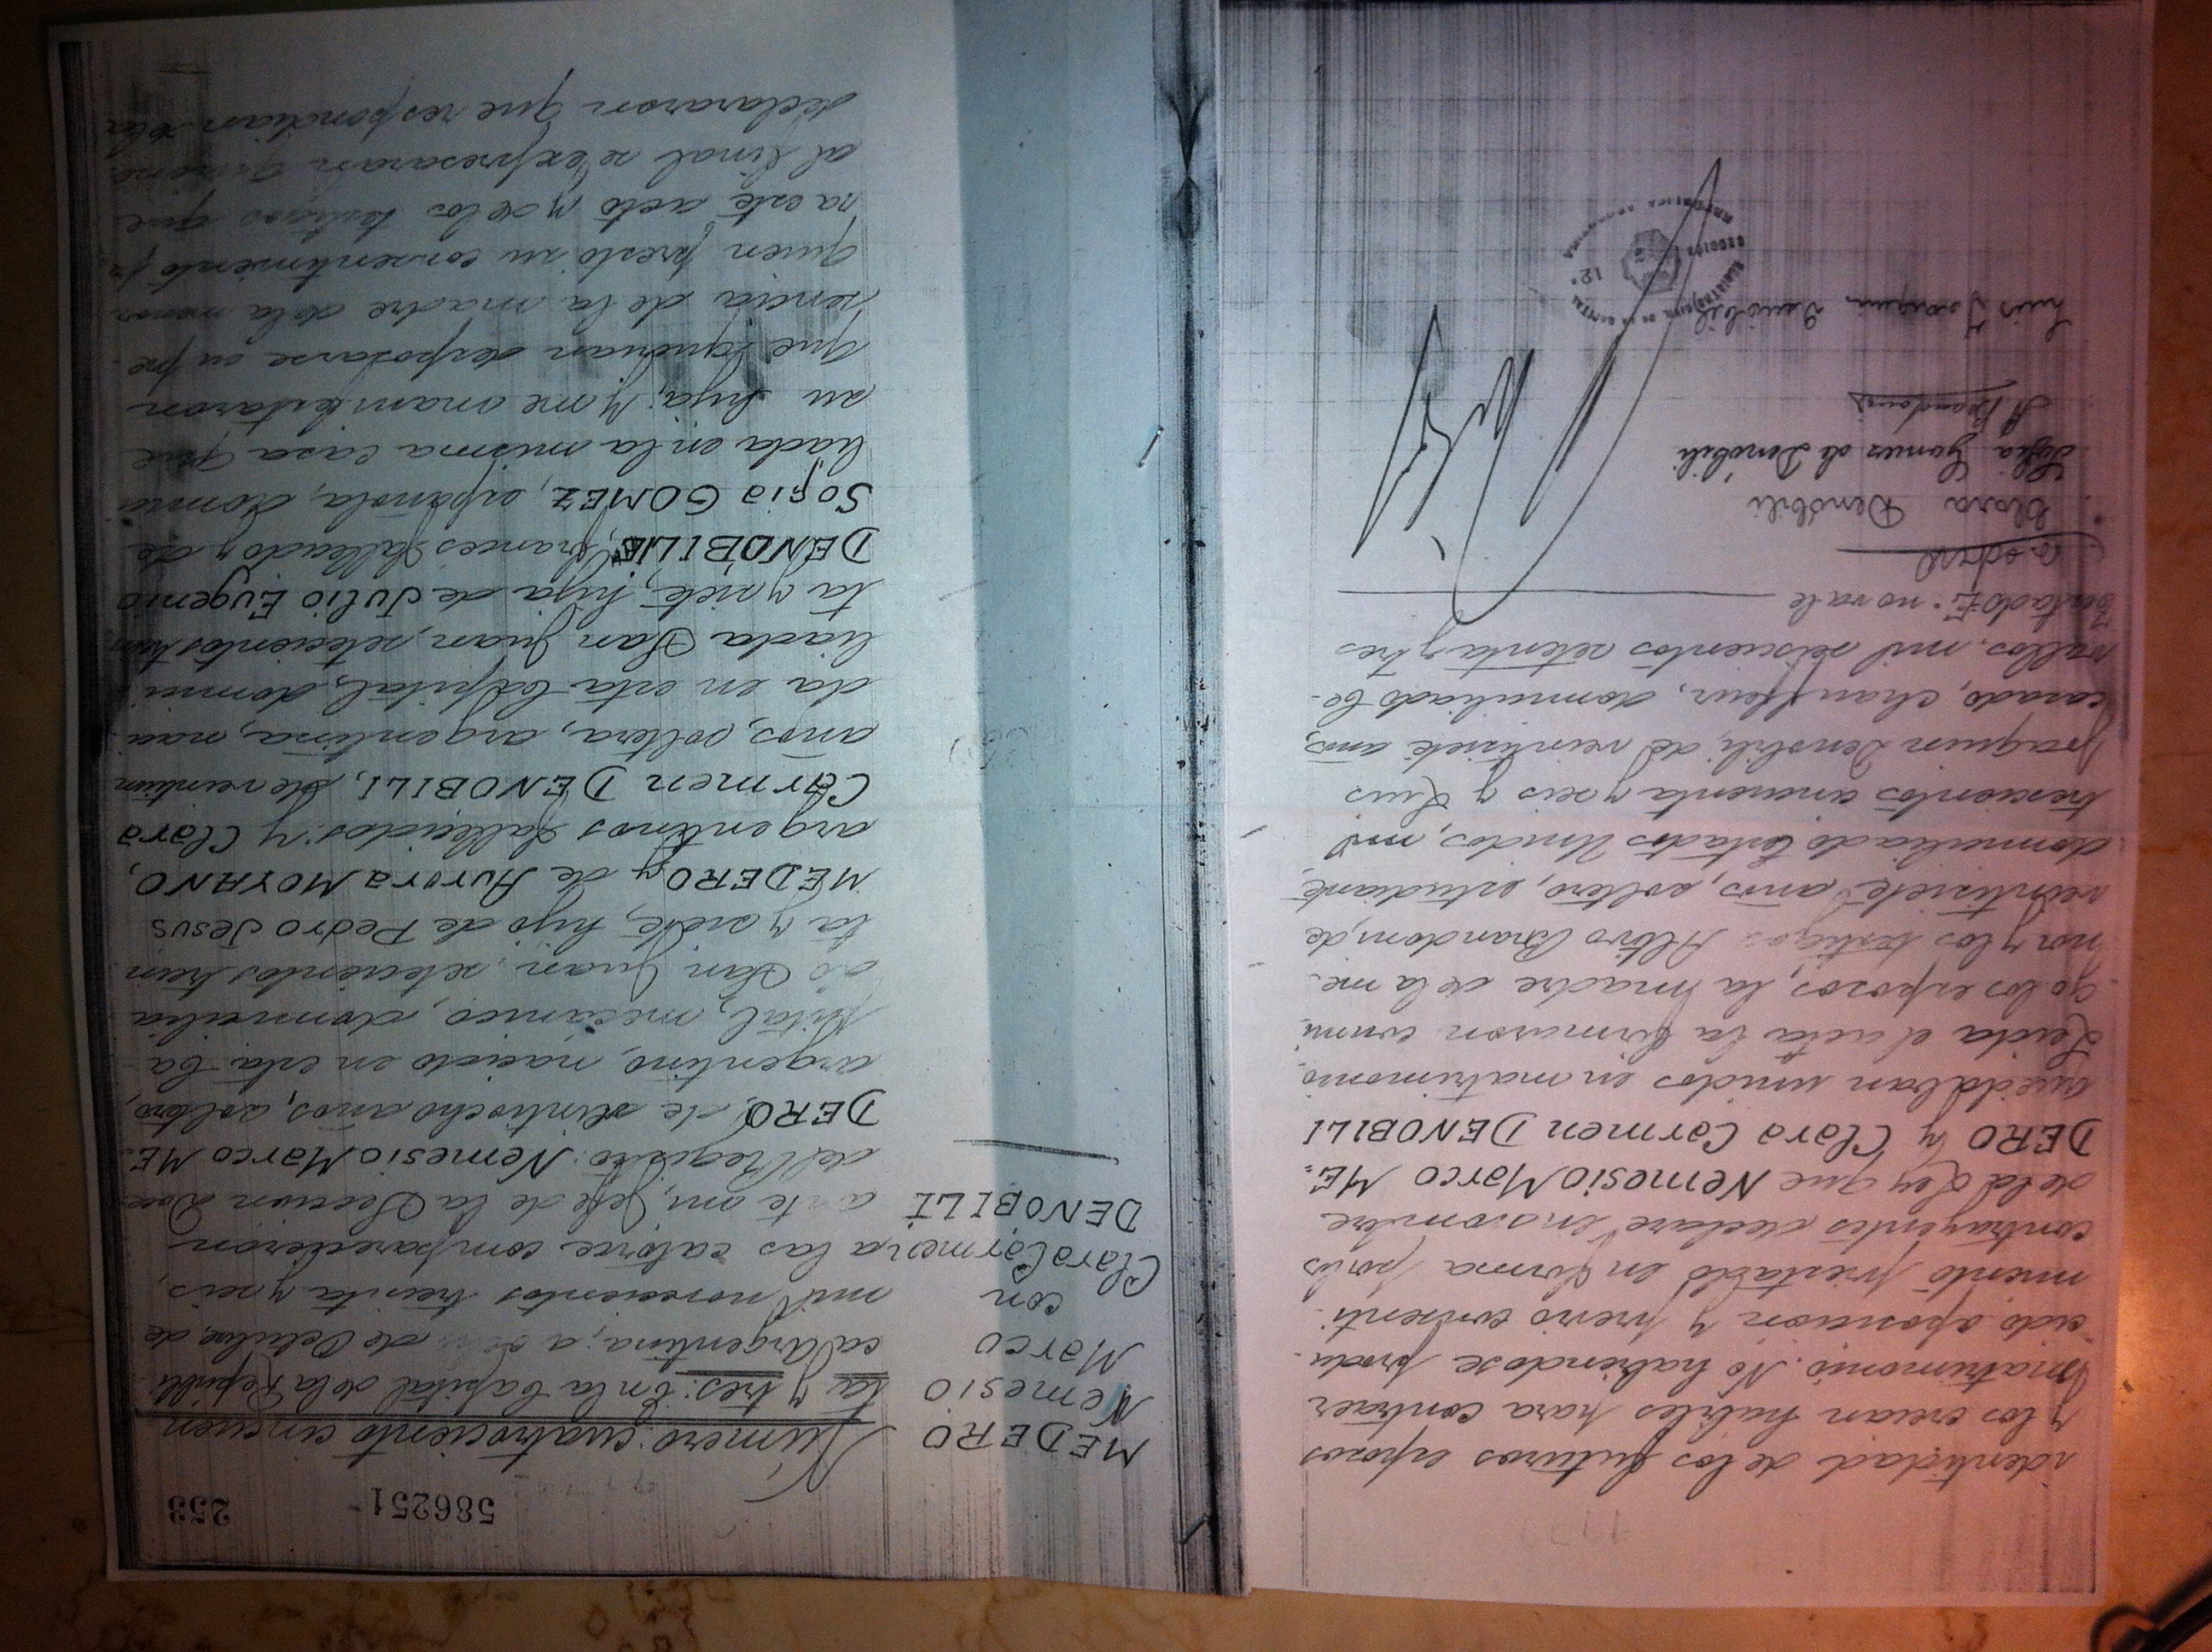 586251 253
MEDERO
Nemesio
Marco
con
Clara Carmen
DENOBILI
Número cuatrociento cincuen
ta y tres: En la Capital de la Repúbli
ca Argentina, a de Octubre de
mil novecientos treinta y seis,
a las catorce comparecieron
ante mi, Jefe de la Seccion Doce
del Registro: Nemesio Marco ME-
DERO, de veintiocho años, soltero,
argentino, nacido en esta Ca-
pital, mecánico, domicilia
do San Juan, setecientos trein
ta y siete, hijo de Pedro Jesus
MEDERO y de Aurora MOYANO,
argentinos fallecidos: y Clara
Carmen DENOBILI, de veintiun
años, soltera, argentina, naci
da en esta Capital, domici
liada San Juan, setecientos trein
ta y siete, hija de Julio Eugenio
DENOBILI, frances fallecido y de
Sofia GOMEZ, española, domici
liada en la misma casa que
su hija; y me manifestaron
que querian desposarse en pre
sencia de la madre de la menor
quien prestó su consentimiento pa
ra este acto y de los testigos que
al final se expresaran quienes
declararon que respondian de la
identidad de los futuros esposos
y los creian hábiles para contraer
matrimonio. No habiendose produ-
cido oposicion y previo consenti-
miento prestado en forma por los
contrayentes declaré en nombre
de la Ley que Nemesio Marco ME-
DERO y Clara Carmen DENOBILI
quedaban unidos en matrimonio.
Leida el acta la firmaron conmi
go los esposos, la madre de la me-
nor y los testigos Albiro Brandoni, de
veintisiete años, soltero, estudiante
domiciliado Estados Unidos, mil
trescientos cincuenta y seis y Luis
Joaquin Denobili, de veintisiete años,
casado, chauffeur, domiciliado Ce-
vallos, mil seiscientos setenta y tres
Testado E. no vale
Clara Denobili
Sofia Gomez de Denobili
A Brandoni
Luis Joaquin Denobili
REGISTRO CIVIL DE LA CAPITAL
SECCION 12ª
REPUBLICA ARGENTINA